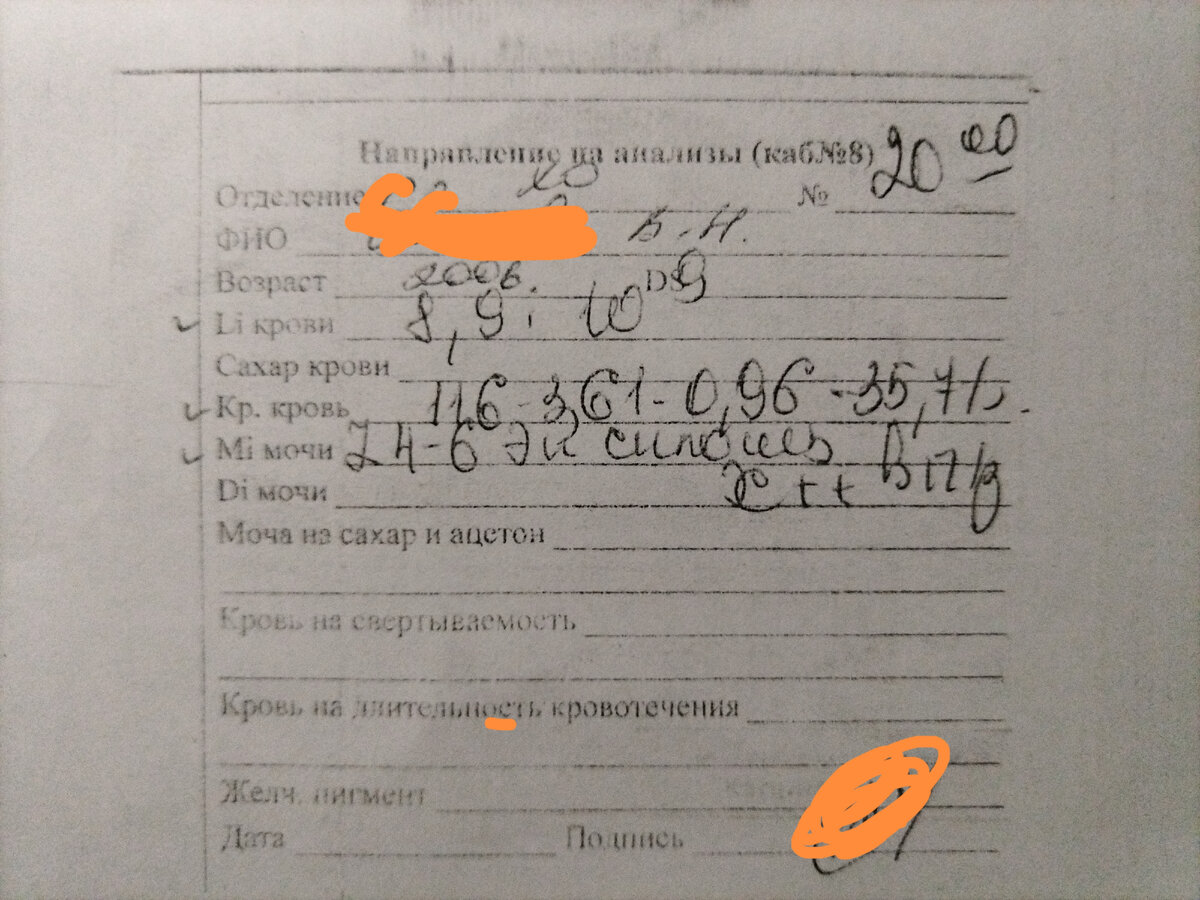 Направление на анализы (каб№8) 20 00
Отделение №
ФИО В.Н.
Возраст 2006. DS
Li крови 8,9 · 10 9
Сахар крови
Кр. кровь 116-3,61-0,96-35,7%.
Mi мочи L 4-6 Эи сплошь
Di мочи ++
Моча на сахар и ацетон
Кровь на свертываемость
Кровь на длительность кровотечения
Желч. пигмент
Дата Подпись